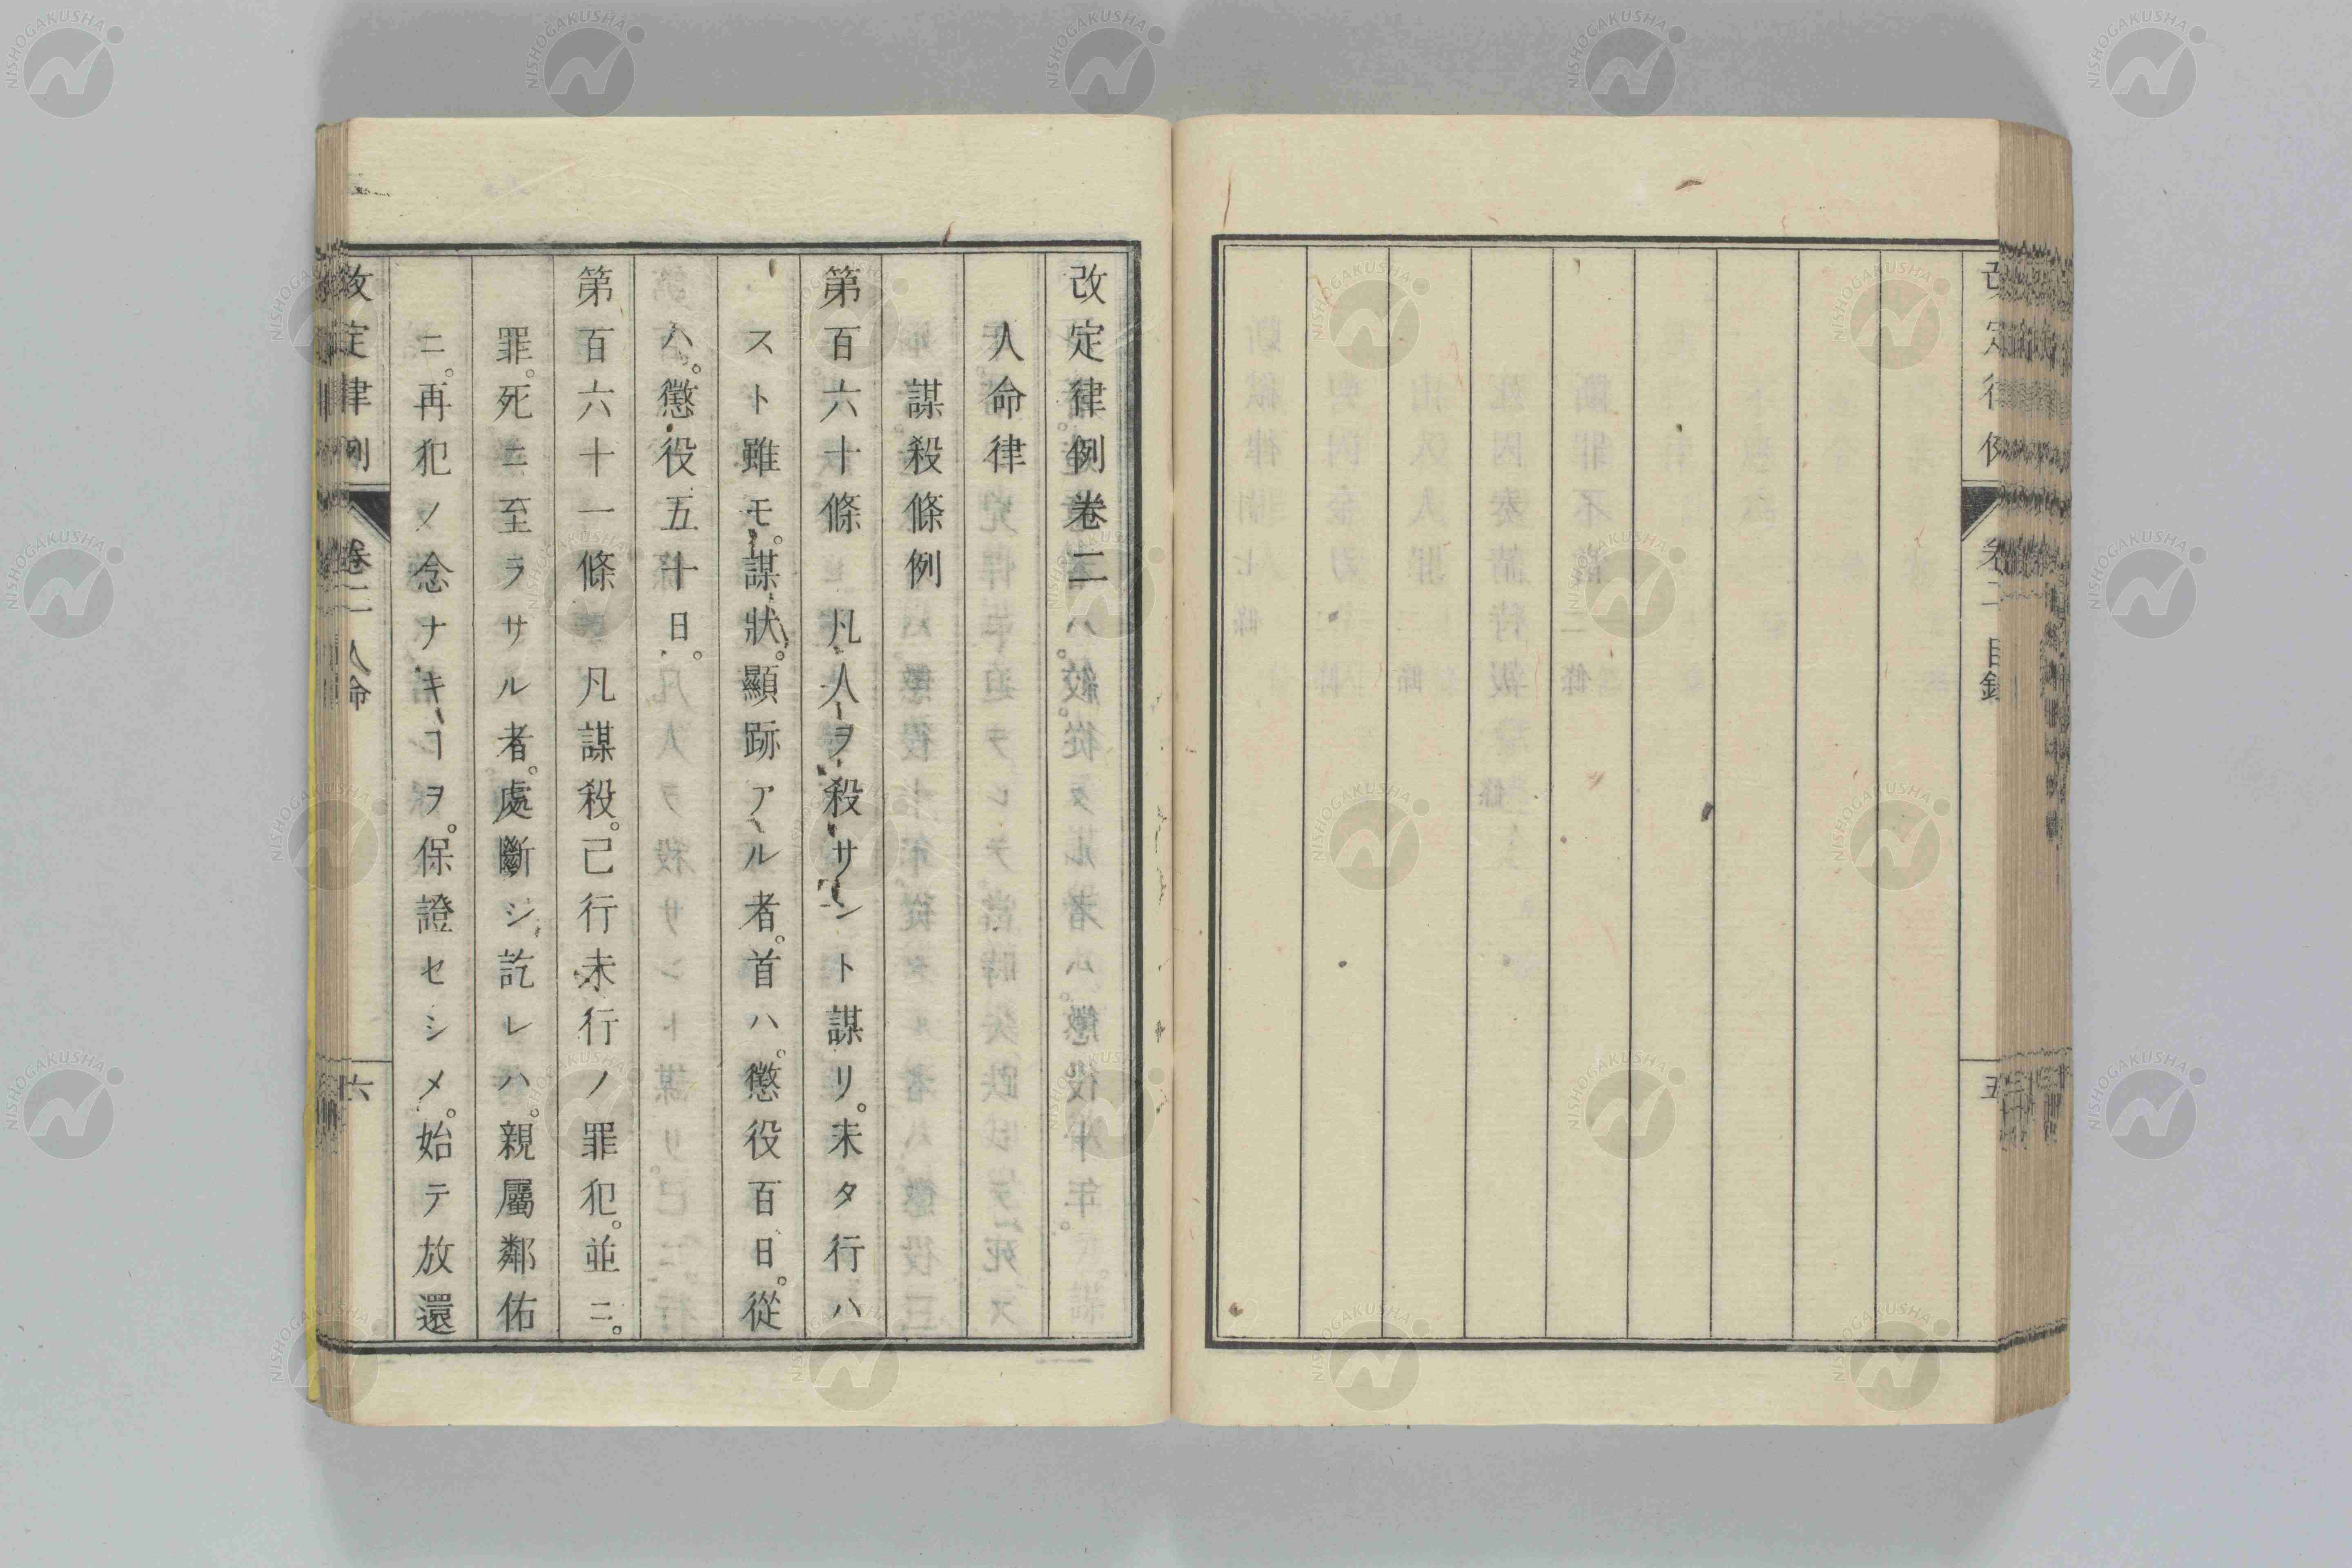 改定律例卷二
人命律
謀殺條例
第百六十條　凡人ヲ殺サント謀リ。未タ行ハ
スト雖モ。謀狀。顯跡アル者。首ハ。懲役百日。從
ハ。懲役五十日。
第百六十一條　凡謀殺。已行未行ノ罪犯。並ニ。
罪。死ニ至ラサル者。處斷シ訖レハ。親屬鄰佑
ニ。再犯ノ念ナキヿヲ。保證セシメ。始テ放還
改定律例　卷二　人命　六
改定律例　卷二目錄　五
NISHOGAKUSHA